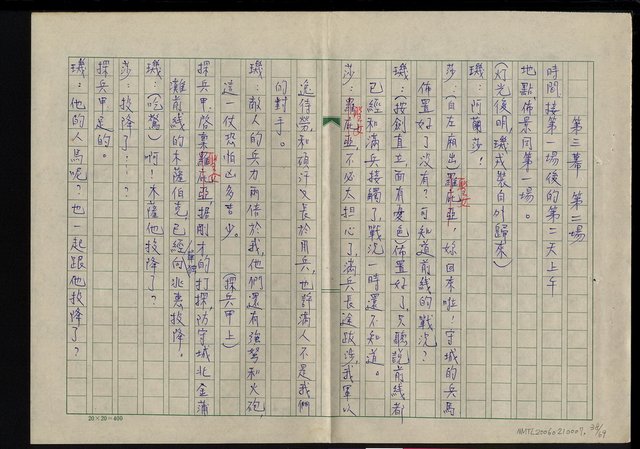 第三幕 第二場
時間：接第一場後的第二天上午
地點佈景同第一場。
(灯光復明，璣戎裝自外歸來)
璣：阿蘭莎！
莎：(自左廂出)羅底亞，妳回來啦！守城的兵馬
佈置好了沒有？可知道前線的戰況？
璣：(按劍直立，面有憂色)佈置好了，只聽說前線都
已經和滿兵接觸了，戰況一時還不知道。
莎：羅底亞不必太担心了，滿兵長途跋涉，我軍以
逸待勞，和碩汗又長於用兵，也許滿人不是我們
的對手。
璣：敵人的兵力兩倍於我，他們還有強弩和火砲，
這一仗恐怕凶多吉少。 (探兵甲上)
探兵甲：啓稟羅底亞，据剛才的打探，防守城北金蒲
灘前線的木薩伯克已經向兆惠投降。
璣：(吃驚)啊！木薩他投降了？
莎：投降了……？
探兵甲：是的。
璣：他的人馬呢？也一起跟他投降了？
20×20=400
NMTL20060210007
38/69